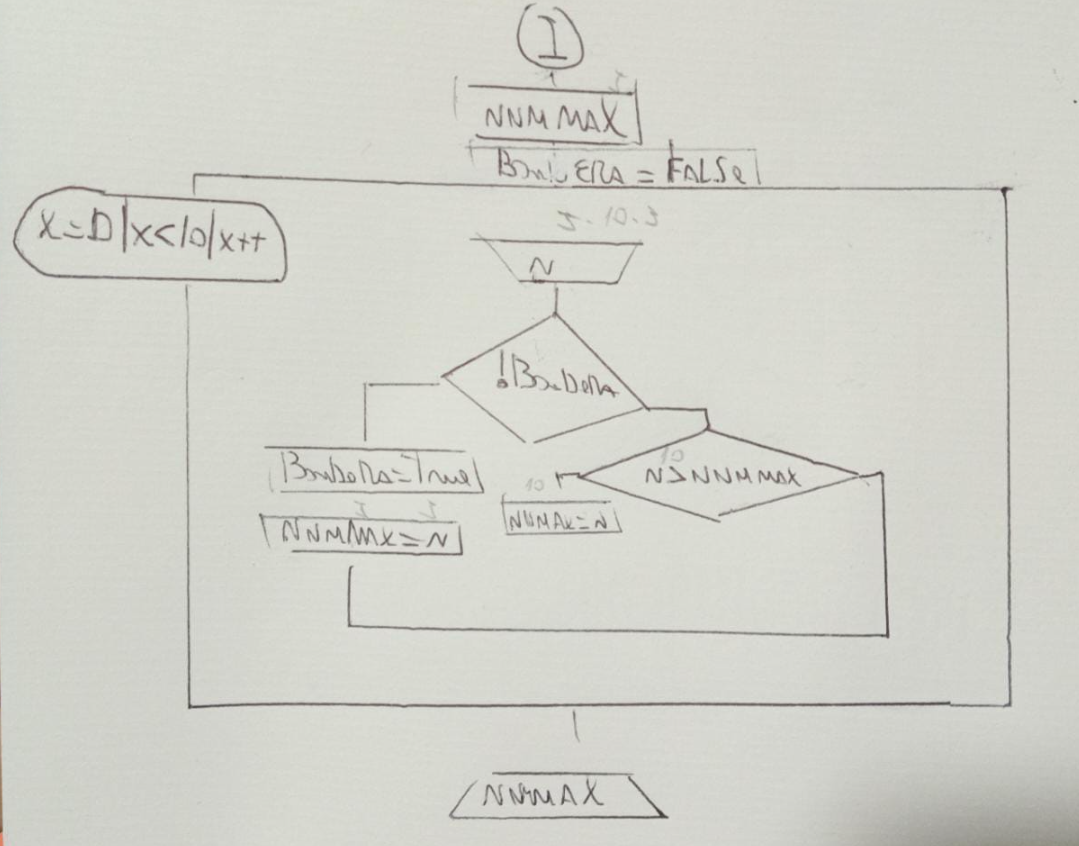 I
5
NNMMAX
BANDERA = FALSe
X=0|X<10|X++
5-10-3
N
!BANDERA
BANDERA=True
10
N>NNMMAX
10
NNMAX=N
5 5
NNMMAX=N
NNMAX